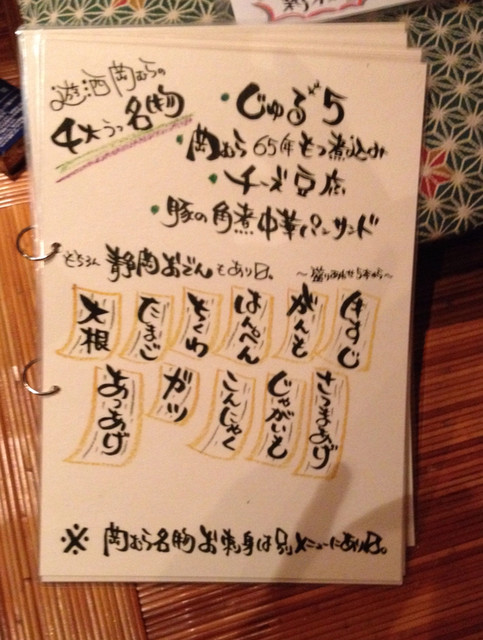 遊酒 岡むらの
4大うっ名物
・じゅるる
・岡むら 65年もつ煮込み
・チーズ豆腐
・豚の角煮中華パンサンド
もちろん 静岡おでんもあり〼。
大根
たまご
ちくわ
はんぺん
がんも
牛すじ
あつあげ
ガツ
こんにゃく
じゃがいも
さつまあげ
※ 岡むら名物お刺身は別メニューにあり〼。